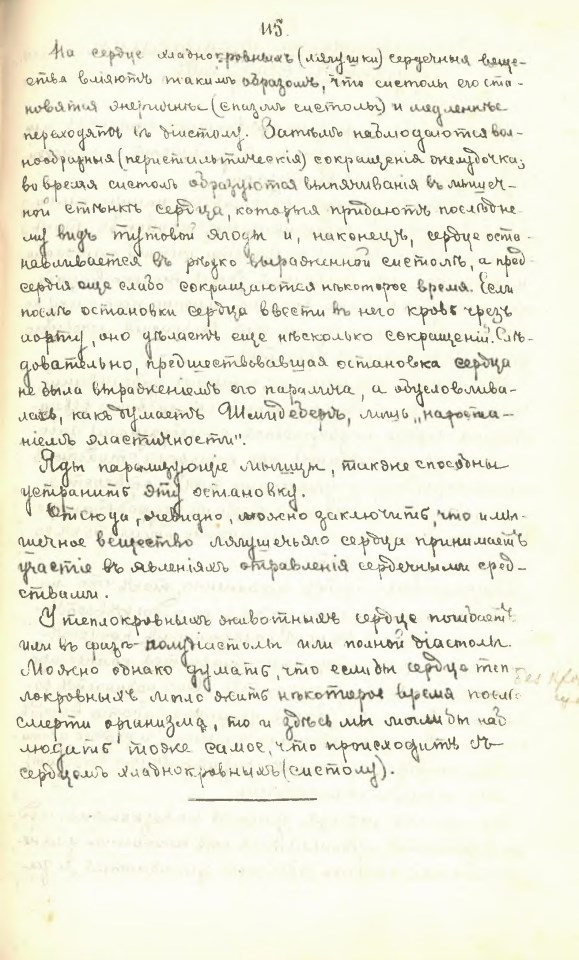 115.
На сердце хладнокровныхъ (лягушки) сердечныя веще-
ства вліяютъ такимъ образомъ, что систолы его ста-
новятся энергичнѣе (спазмъ систолы) и медленнѣе
переходятъ въ діастолу. Затѣмъ наблюдаются вол-
нообразныя (перистильтическія) сокращенія желудочка;
во время систолъ образуются выпячиванія въ мышеч-
ной стѣнкѣ сердца, которыя придаютъ послѣдне-
му видъ тутовой ягоды и, наконецъ, сердце оста-
навливается въ рѣзко выраженной систолѣ, а пред-
сердія еще слабо сокращаются нѣкоторое время. Если
послѣ остановки сердца ввести въ него кровь чрезъ
аорту, оно дѣлаетъ еще нѣсколько сокращеній. Слѣ-
довательно, предшествовавшая остановка сердца
не была выраженіемъ его паралича, а обусловлива-
лась, какъ думаетъ Шмидебергъ, лишь „нароста-
ніемъ эластичности".
Яды парализующіе мышцы, также способны
устранить эту остановку.
Отсюда, очевидно, можно заключить, что и мы-
шечное вещество лягушечьяго сердца принимаетъ
участіе въ явленіяхъ отравленія сердечными сред-
ствами.
У теплокровныхъ животныхъ сердце погибаетъ
или въ фазѣ полудіастолы или полной діастолы.
Можно однако думать, что если бы сердце теп-
локровныхъ могло жить нѣкоторое время послѣ
смерти организма, то и здѣсь мы могли бы наб-
людать тоже самое, что происходитъ съ
сердцемъ хладнокровныхъ (систолу).